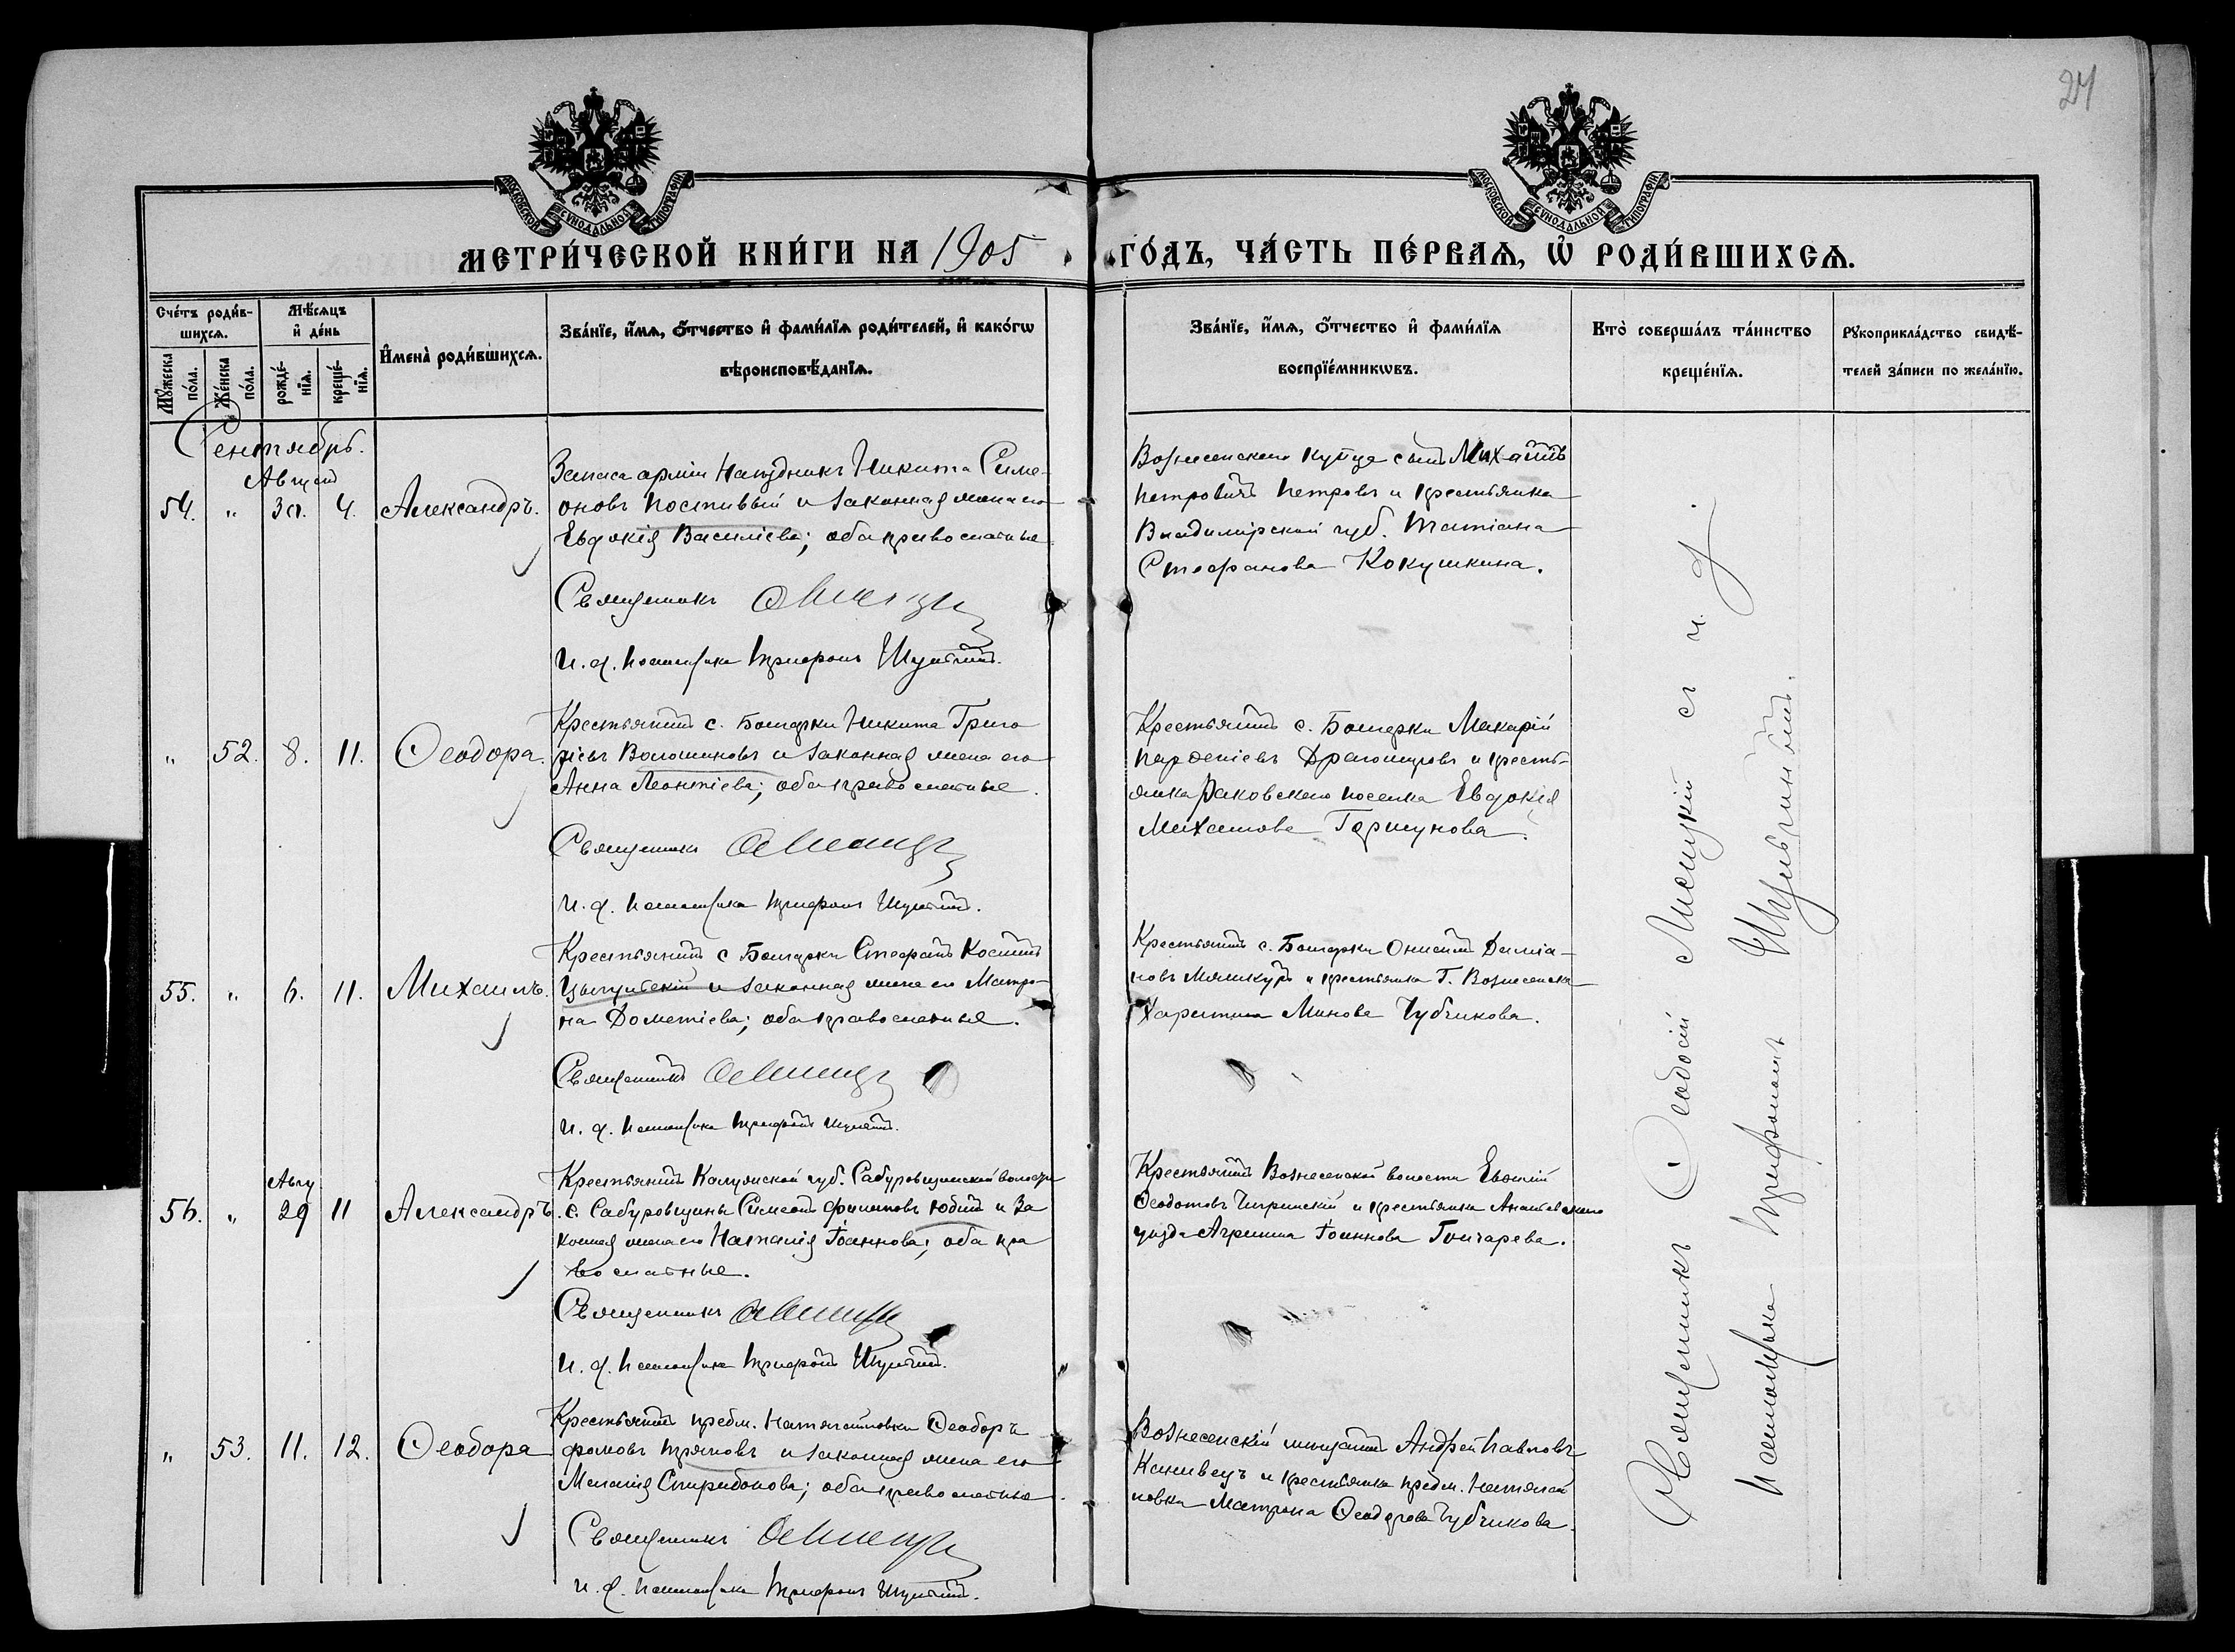 24
МОСКОВСКОЙ СѴНОДАЛЬНОЙ ТИПОГРАФІИ
МОСКОВСКОЙ СѴНОДАЛЬНОЙ ТИПОГРАФІИ
МЕТРИ́ЧЕСКОЙ КНИ́ГИ НА 1905
ГО́ДЪ, ЧА́СТЬ ПЕ́РВАѦ, Ѡ҆ РОДИ́ВШИХСѦ.
Сче́тъ роди́в-
шихсѧ.
Мꙋ́жеска по́ла.
Же́нска по́ла.
Мѣ́сѧцъ
и҆ де́нь
рожде́-нїѧ.
креще́-нїѧ.
И҆мена̀ роди́вшихсѧ.
Зва́нїе, и҆́мѧ, ѻ҆́тчество и҆ фами́лїѧ роди́телей, и҆ како́гѡ
вѣроисповѣ́данїѧ.
Зва́нїе, и҆́мѧ, ѻ҆́тчество и҆ фами́лїѧ
воспрїе́мникѡвъ.
Кто̀ соверша́лъ та́инство
креще́нїѧ.
Рꙋкоприкла́дство свидѣ́-
телей за́писи по жела́нїю.
Сентябрь.
Август
54. " 30. 4. Александръ.
Запаса арміи Наѣздникъ Никита Симе-
оновъ и законная жена его
Евдокія Василіева; оба православные
Священникъ
И. д. псаломщика Трифонъ
Вознесенскаго купца сынъ Михаилъ
Петровичъ Петровъ и крестьянка
Владимірской губ. Татіана
Стефанова Кокушкина.
" 52. 8. 11. Ѳеодора.
Крестьянинъ с. Болгарки Никита Григо
ріевъ Волошиновъ и законная жена его
Анна Леонтіева; оба православные.
Священникъ
И. д. псаломщика Трифонъ
Крестьянинъ с. Болгарки Макарій
Парѳеніевъ и кресть-
янка Раковскаго поселка Евдокія
Михаилова Горшунова.
55. " 6. 11. Михаилъ.
Крестьянинъ с Болгарки Стефанъ Косминъ
и законная жена его Матро-
на Дометіева; оба православные.
Священникъ
И. д. псаломщика Трифонъ
Крестьянинъ с. Болгарки Онисимъ Даміа-
новъ и крестьянка Г. Вознесенска
Харитина Минова Чубчикова.
Авгу
56. " 29 11 Александръ
Крестьянинъ Калужской губ. Сабуровщинской волости
с. Сабуровщины Симеонъ Филиповъ Юдинъ и за
конная жена его Наталія Іоаннова; оба пра
вославные.
Священникъ
И. д. псаломщика Трифонъ
Крестьянинъ Вознесенской волости Евѳимій
Ѳеодотовъ и крестьянка Ананьевскаго
уѣзда Агрипина Іоаннова Гончарева.
" 53. 11. 12. Ѳеодора
Крестьянинъ предм. Натягайловки Ѳеодоръ
Фомовъ и законная жена его
Меланія Спиридонова; оба православные.
Священникъ
И. д. псаломщика Трифонъ
Вознесенскій мѣщанинъ Андрей Павловъ
Канивецъ и крестьянка предм. Натягай
ловки Матрона Ѳеодорова Чубчикова.
Священникъ Ѳеодосій Лисицкій съ и. д.
псаломщика Трифономъ